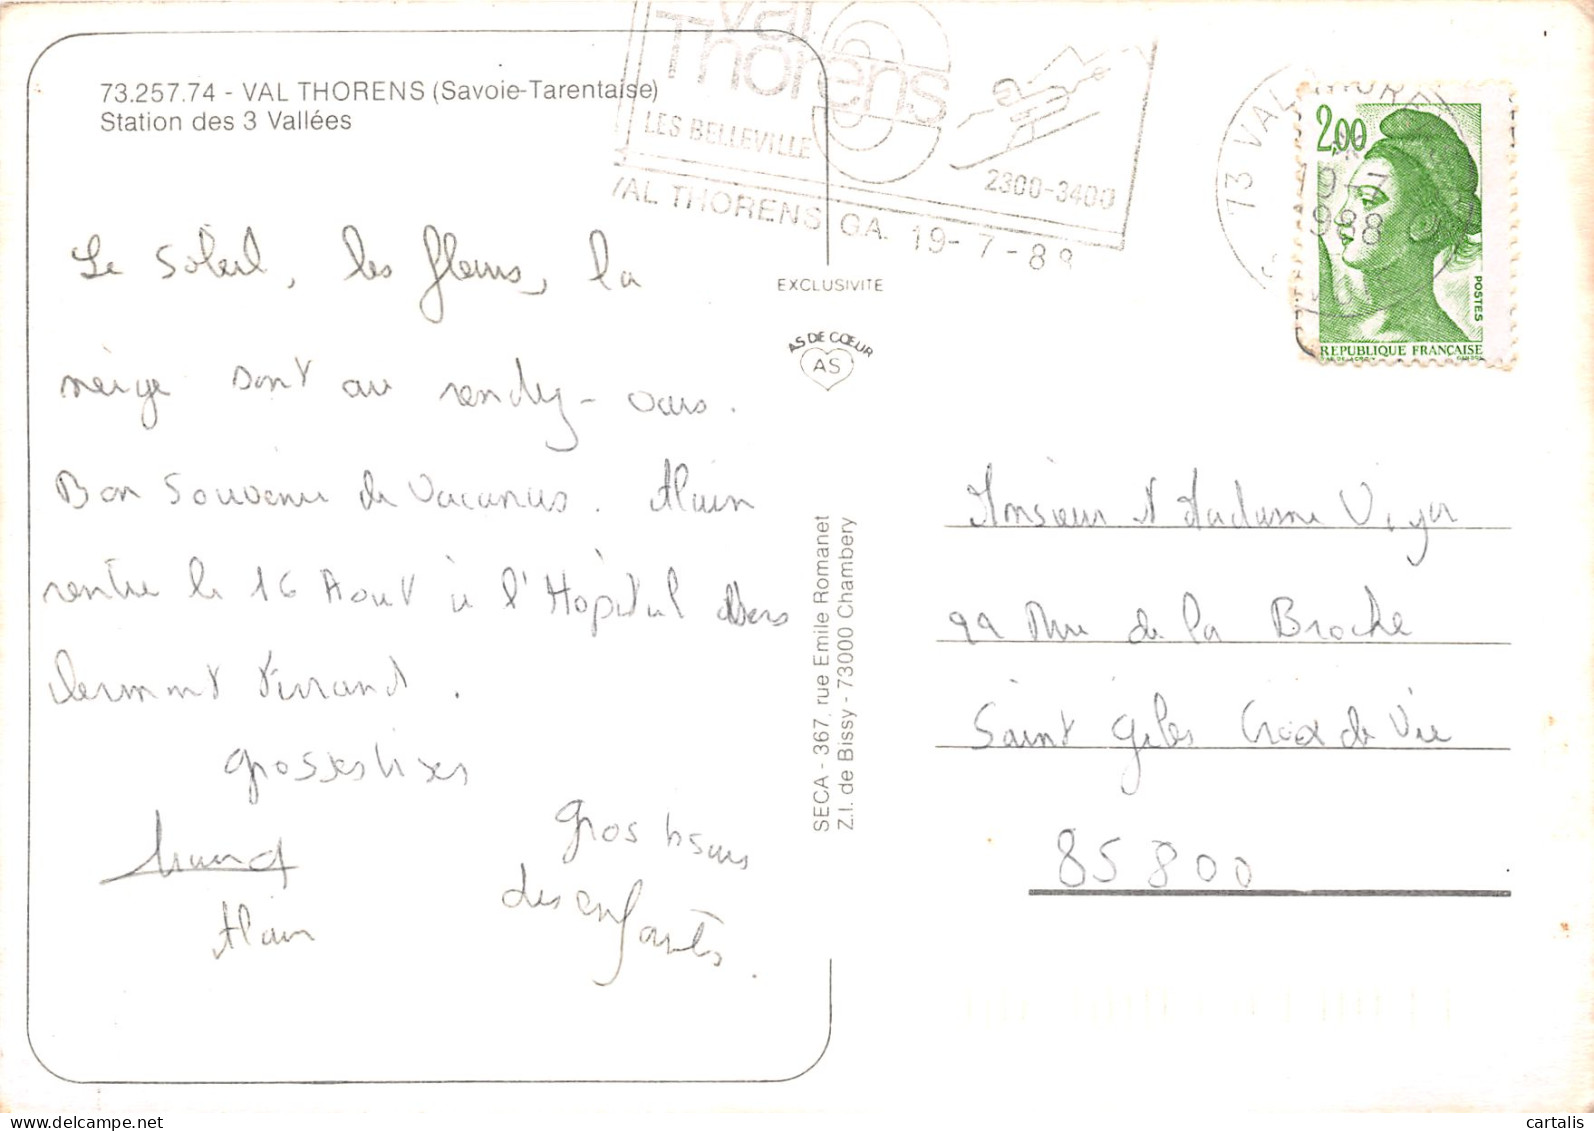 73.257.74 - VAL THORENS (Savoie-Tarentaise)
Station des 3 Vallées
Val
Thorens
LES BELLEVILLE
2300-3400
VAL THORENS GA. 19-7-88
73 VAL THORENS
19-7
1988
2,00
POSTES
REPUBLIQUE FRANÇAISE
EXCLUSIVITE
AS DE CŒUR
AS
Le Soleil, les fleurs, la
neige sont au rendez-vous.
Bon Souvenir de Vacances. Alain
rentre le 16 Aout à l'Hôpital
Clermont Ferrand.
grosses bises
Alain
gros bisous
des enfants.
SECA - 367, rue Emile Romanet
Z.I. de Bissy - 73000 Chambery
Monsieur et Madame
99 Rue de la Broche
Saint Gilles Croix de Vie
85800
cartalis